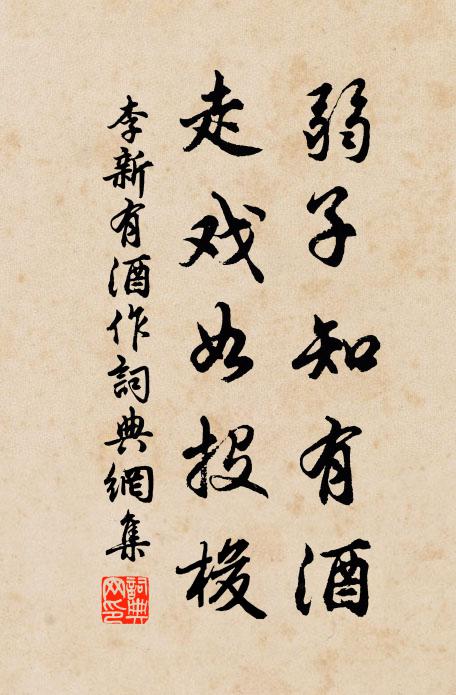 弱子知有酒
走戏如投梭
李新有酒作詞典網集
詞典